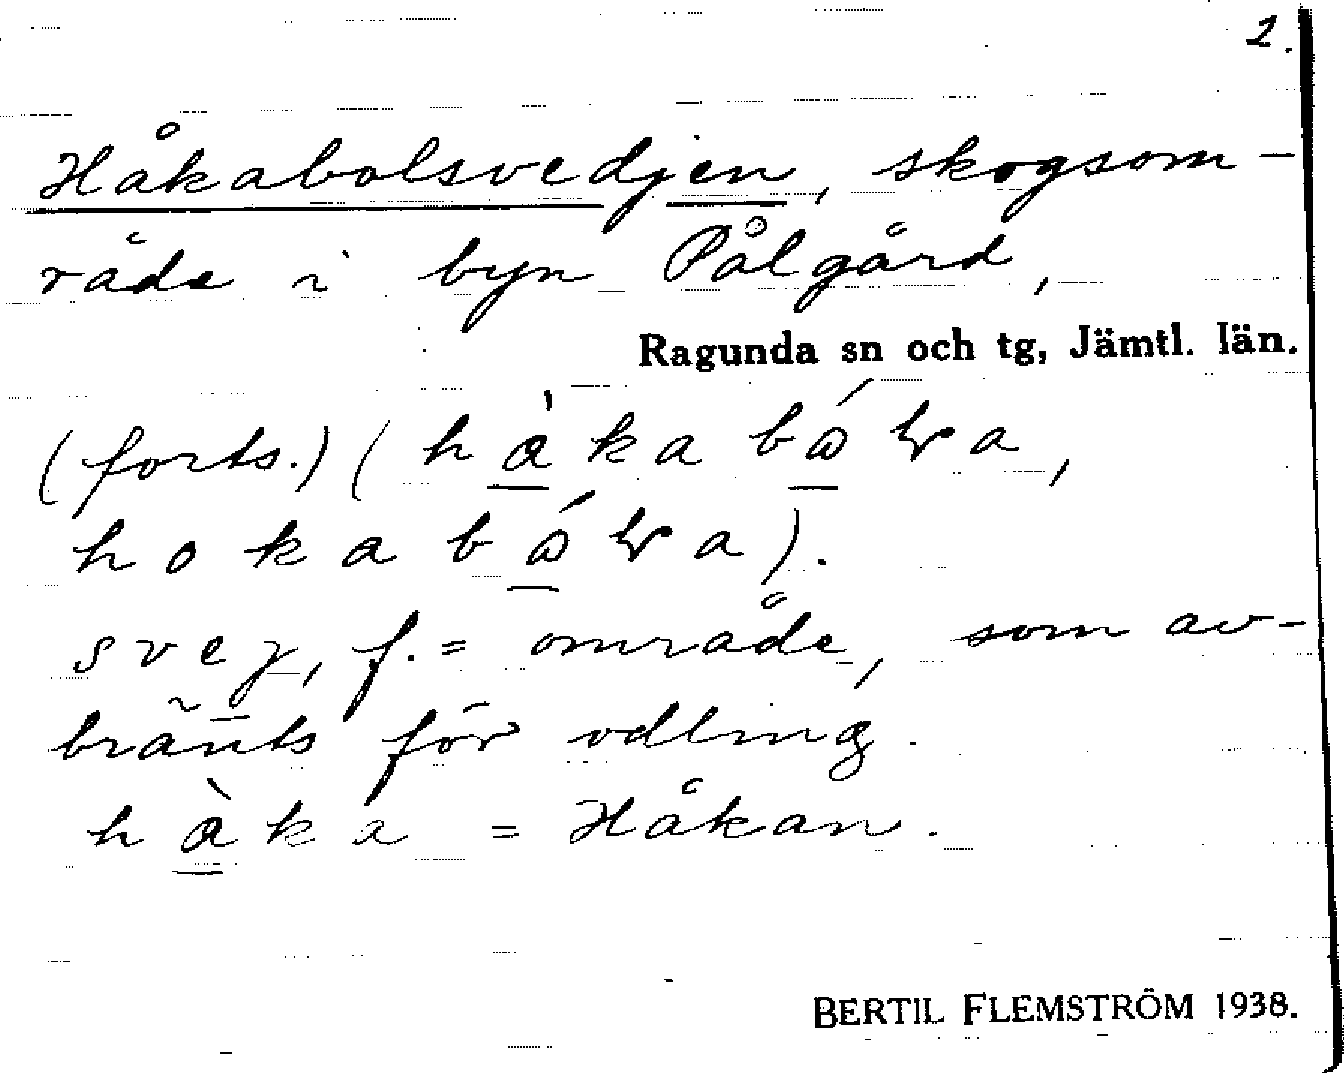 2.
Håkabolsvedjen, skogsom-
råde i byn Pålgård,
Ragunda sn och tg, Jämtl. län.
(forts.) (
svej, f. = område, som av-
bränts för odling.
hàka = Håkan.
BERTIL FLEMSTRÖM 1938.